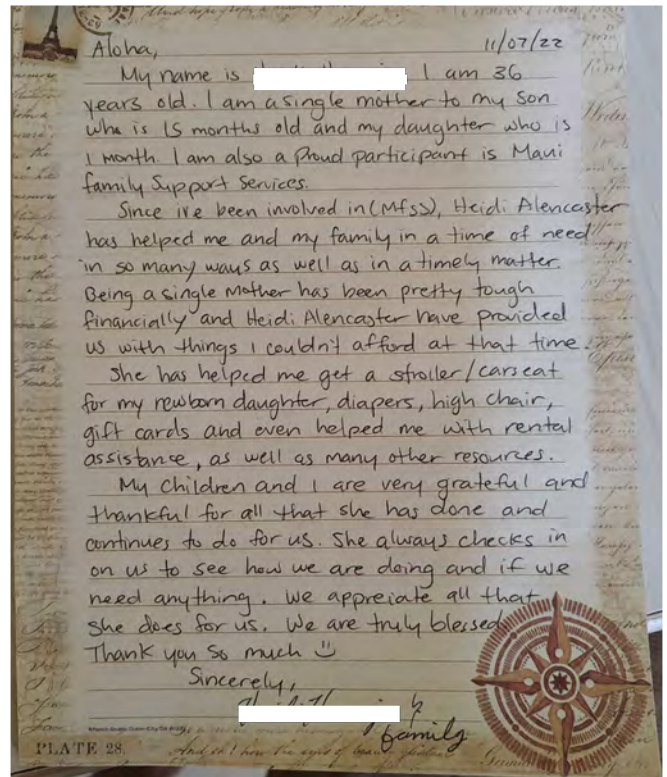 Aloha, 11/07/22
My name is I am 36
years old. I am a single mother to my son
who is 15 months old and my daughter who is
1 month. I am also a Proud participant is Maui
family Support Services.
Since ive been involved in (MfSS), Heidi Alencaster
has helped me and my family in a time of need
in so many ways as well as in a timely matter.
Being a single Mother has been pretty tough
financially and Heidi Alencaster have provided
us with things I couldn't afford at that time.
She has helped me get a stroller/carseat
for my newborn daughter, diapers, high chair,
gift cards and even helped me with rental
assistance, as well as many other resources.
My Children and I are very grateful and
thankful for all that she has done and
continues to do for us. She always checks in
on us to see how we are doing and if we
need anything. We appreiate all that
She does for us. We are truly blessed
Thank you so much
Sincerely,
family
PLATE 28.